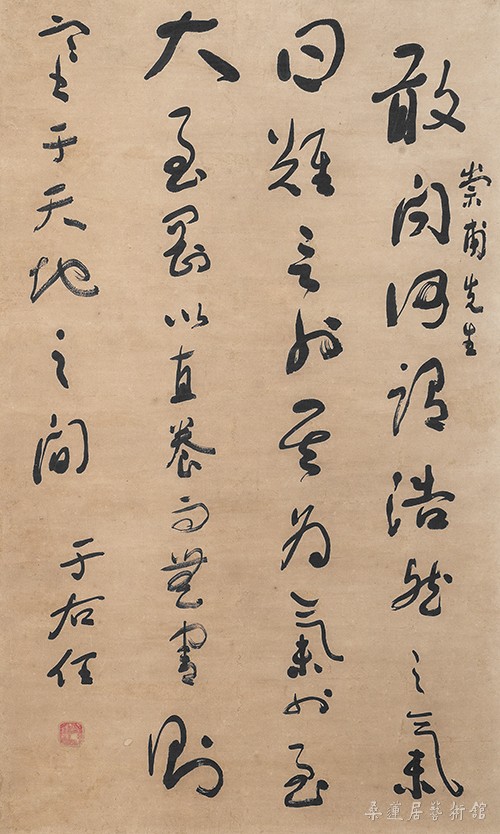 崇甫先生
敢問何謂浩然之氣
曰難言也其為氣也至
大至剛以直養而無害則
塞于天地之間
于右任
桑蓮居藝術館